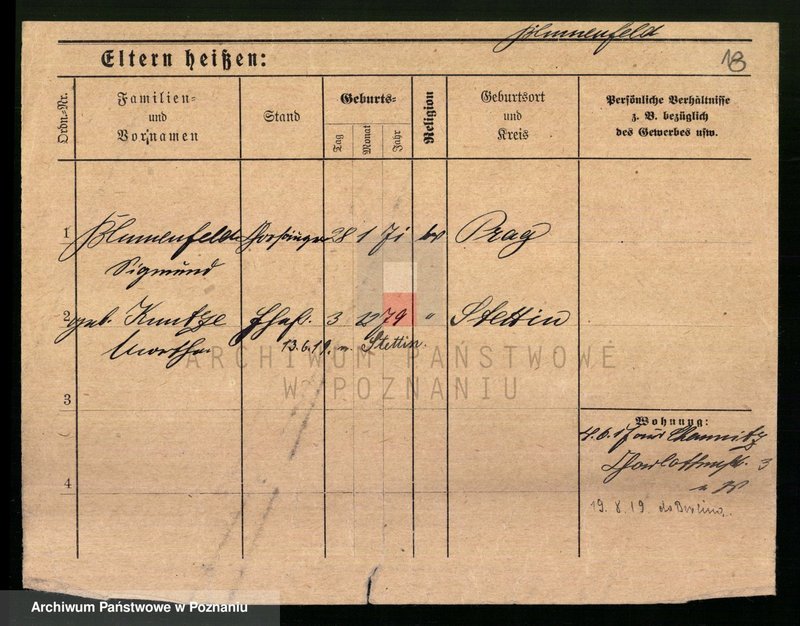 Blumenfeld
18
Eltern heißen:
Ordn.-Nr.
Familien- und Vornamen
Stand
Geburts-
Tag
Monat
Jahr
Religion
Geburtsort und Kreis
Persönliche Verhältnisse
z. B. bezüglich
des Gewerbes usw.
1 Blumenfeld 28 1 Prag
Sigmund
2 geb. Kuntze 3 79 " Stettin
Martha 13.6.19. n. Stettin.
3
4
Wohnung:
Chemnitz
Charlottenstr. 3
19. 8. 19 Berlin
ARCHIWUM PAŃSTWOWE
W POZNANIU
Archiwum Państwowe w Poznaniu